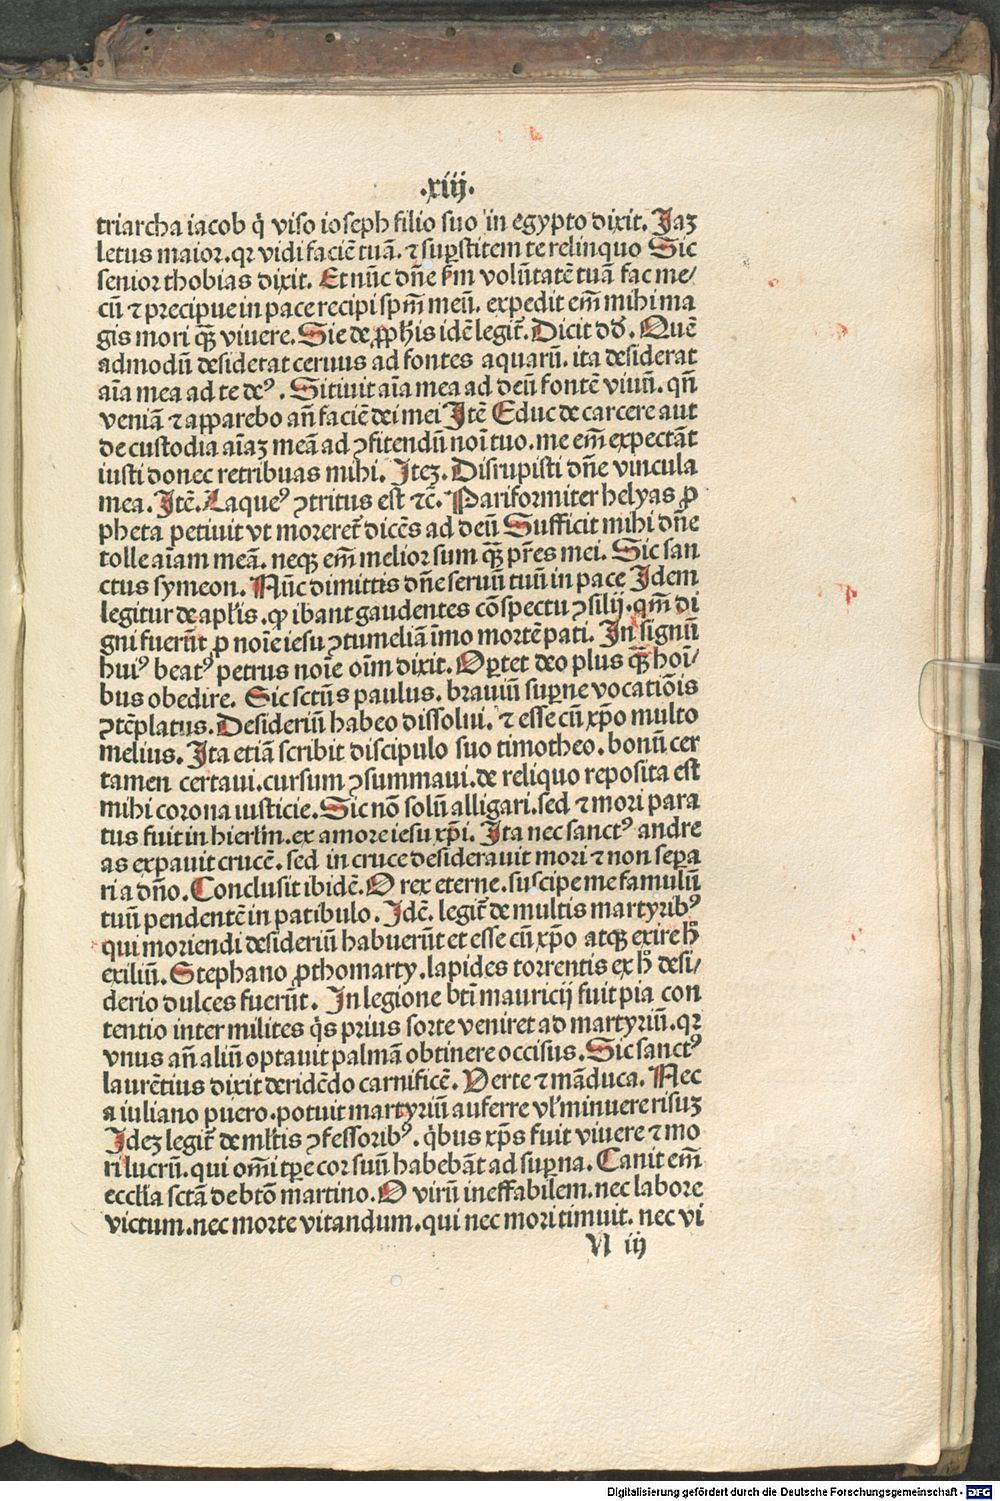 .xiij.
triarcha iacob q̇ viso ioseph filio suo in egypto dixit. Jaꝫ
letus maior. qꝛ vidi faciē tuā. ⁊ suꝑstitem te relinquo Sic
senior thobias dixit. Et nūc dn̄e km̄ volūtatē tuā fac me/
cū ⁊ precipue in pace recipi spm̄ meū. expedit em̄ mihi ma
gis mori qꝫ̄ viuere. Sic de ꝓph̄is idē legit᷑. Dicit dd̄. Quē
admodū desiderat ceruus ad fontes aquarū. ita desiderat
aīa mea ad te deꝰ. Sitiuit aīa mea ad deū fontē viuū. qn̄
veniā ⁊ apparebo an̄ faciē dei mei Jtē Educ de carcere aut
de custodia aīaꝫ meā ad ꝯfitendū noī tuo. me em̄ expectāt
iusti donec retribuas mihi. Jteꝫ. Disrupisti dn̄e vincula
mea. Jtē. Laqueꝰ ꝯtritus est ⁊c̄. Pariformiter helyas ꝓ
pheta petiuit vt moreret᷑ dicēs ad deū Sufficit mihi dn̄e
tolle aīam meā. neqꝫ em̄ melior sum qꝫ̄ pr̄es mei. Sic san
ctus symeon. Nūc dimittis dn̄e seruū tuū in pace Jdem
legitur de apl̓is. ꝙ ibant gaudentes cōspectu ꝯsilij. qm̄ di
gni fuerūt ꝓ noīe iesu ꝯtumeliā īmo mortē pati. Jn signū
huiꝰ beatꝰ petrus noīe oīm dixit. Oꝑtet deo plus qꝫ̄ hoī/
bus obedire. Sic sctūs paulus. brauiū suꝑne vocatiōis
ꝯtēplatus. Desideriū habeo dissolui. ⁊ esse cū xp̄o multo
melius. Jta etiā scribit discipulo suo timotheo. bonū cer
tamen certaui. cursum ꝯsummaui. de reliquo reposita est
mihi corona iusticie. Sic nō solū alligari. sed ⁊ mori para
tus fuit in hierlm̄. ex amore iesu xp̄i. Jta nec sanctꝰ andre
as expauit crucē. sed in cruce desiderauit mori ⁊ non sepa
ri a dn̄o. Conclusit ibidē. O rex eterne. suscipe me famulū
tuū pendentē in patibulo. Jdē. legit᷑ de multis martyribꝰ
qui moriendi desideriū habuerūt et esse cū xp̄o atqꝫ exire h̄
exiliū. Stephano ꝓthomarty. lapides torrentis ex h̄ desi/
derio dulces fuerūt. Jn legione bt̄i mauricij fuit pia con
tentio inter milites q̇s prius sorte veniret ad martyriū. qꝛ
vnus an̄ aliū optauit palmā obtinere occisus. Sic sanctꝰ
laurētius dixit deridēdo carnificē. Verte ⁊ māduca. Nec
a iuliano puero. potuit martyriū auferre vl̓ minuere risuꝫ
Jdeꝫ legit᷑ de ml̓tis ꝯfessoribꝰ. q̇bus xp̄s fuit viuere ⁊ mo
ri lucrū. qui om̄i tꝑe cor suū habebāt ad suꝑna. Canit em̄
eccl̓ia sctā de btō martino. O virū ineffabilem. nec labore
victum. nec morte vitandum. qui nec mori timuit. nec vi
N iij
Digitalisierung gefördert durch die Deutsche Forschungsgemeinschaft - DFG